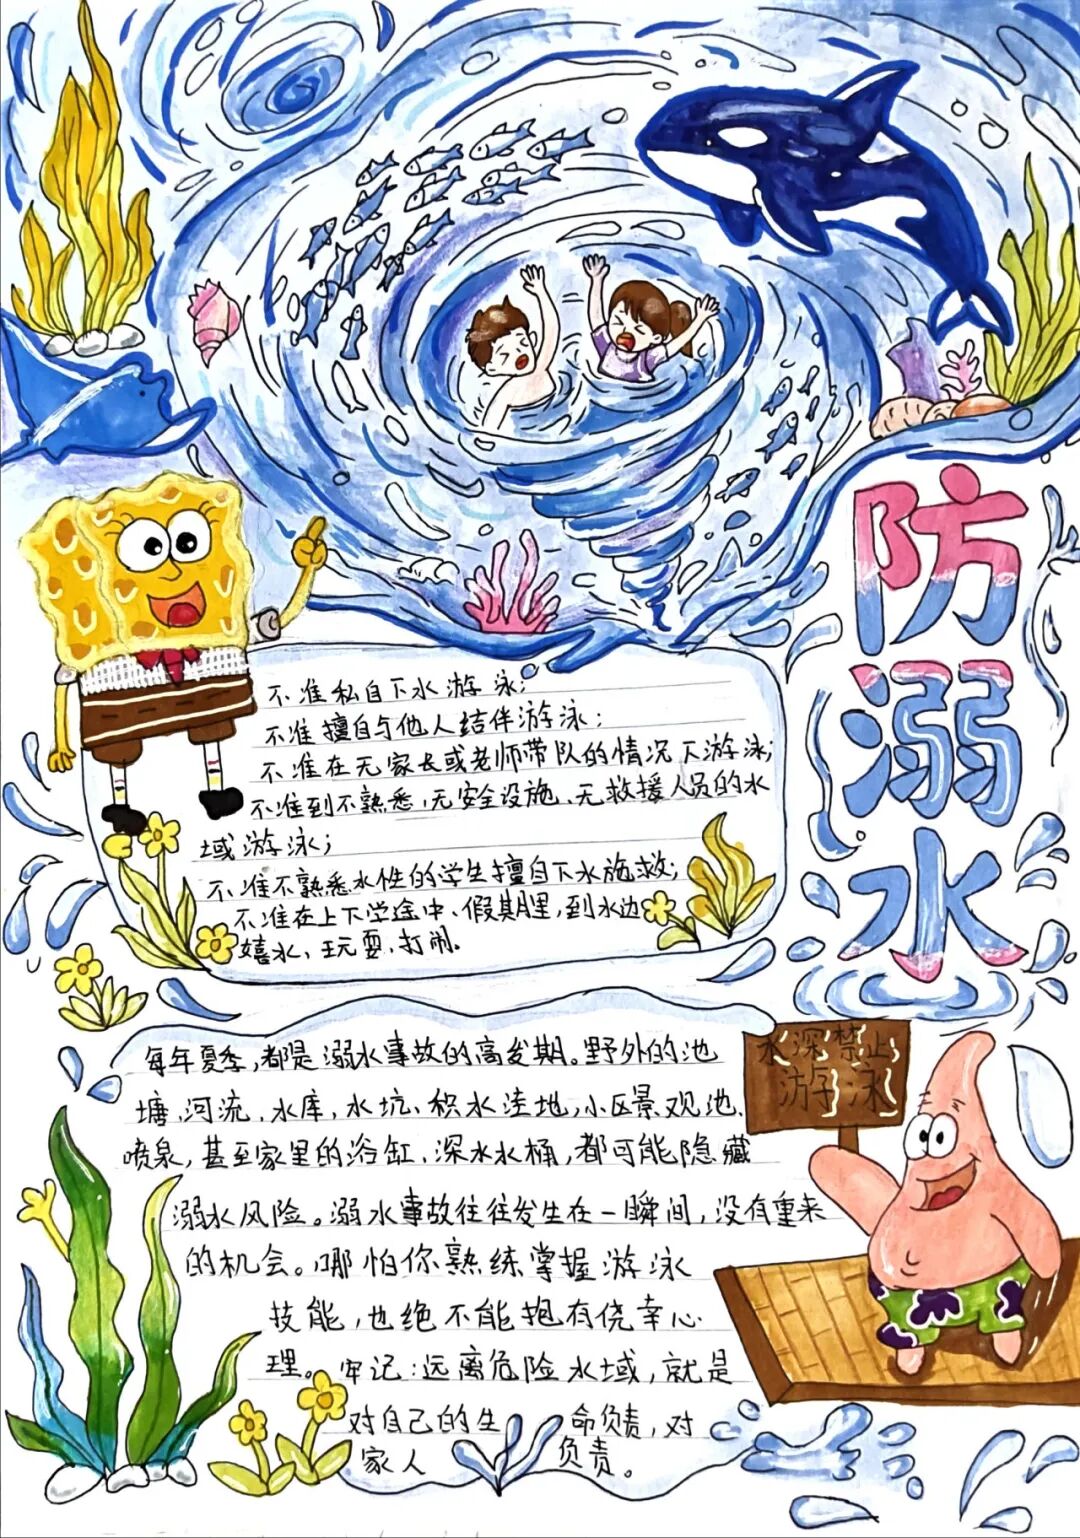 防溺水
不准私自下水游泳；
不准擅自与他人结伴游泳；
不准在无家长或老师带队的情况下游泳；
不准到不熟悉，无安全设施、无救援人员的水
域游泳；
不准不熟悉水性的学生擅自下水施救；
不准在上下学途中、假期里，到水边
嬉水，玩耍，打闹。
水深禁止
游泳
每年夏季，都是溺水事故的高发期。野外的池
塘，河流，水库，水坑、积水洼地，小区景观池、
喷泉，甚至家里的浴缸、深水水桶，都可能隐藏
溺水风险。溺水事故往往发生在一瞬间，没有重来
的机会。哪怕你熟练掌握游泳
技能，也绝不能抱有侥幸心
理。牢记：远离危险水域，就是
对自己的生命负责，对
家人负责。